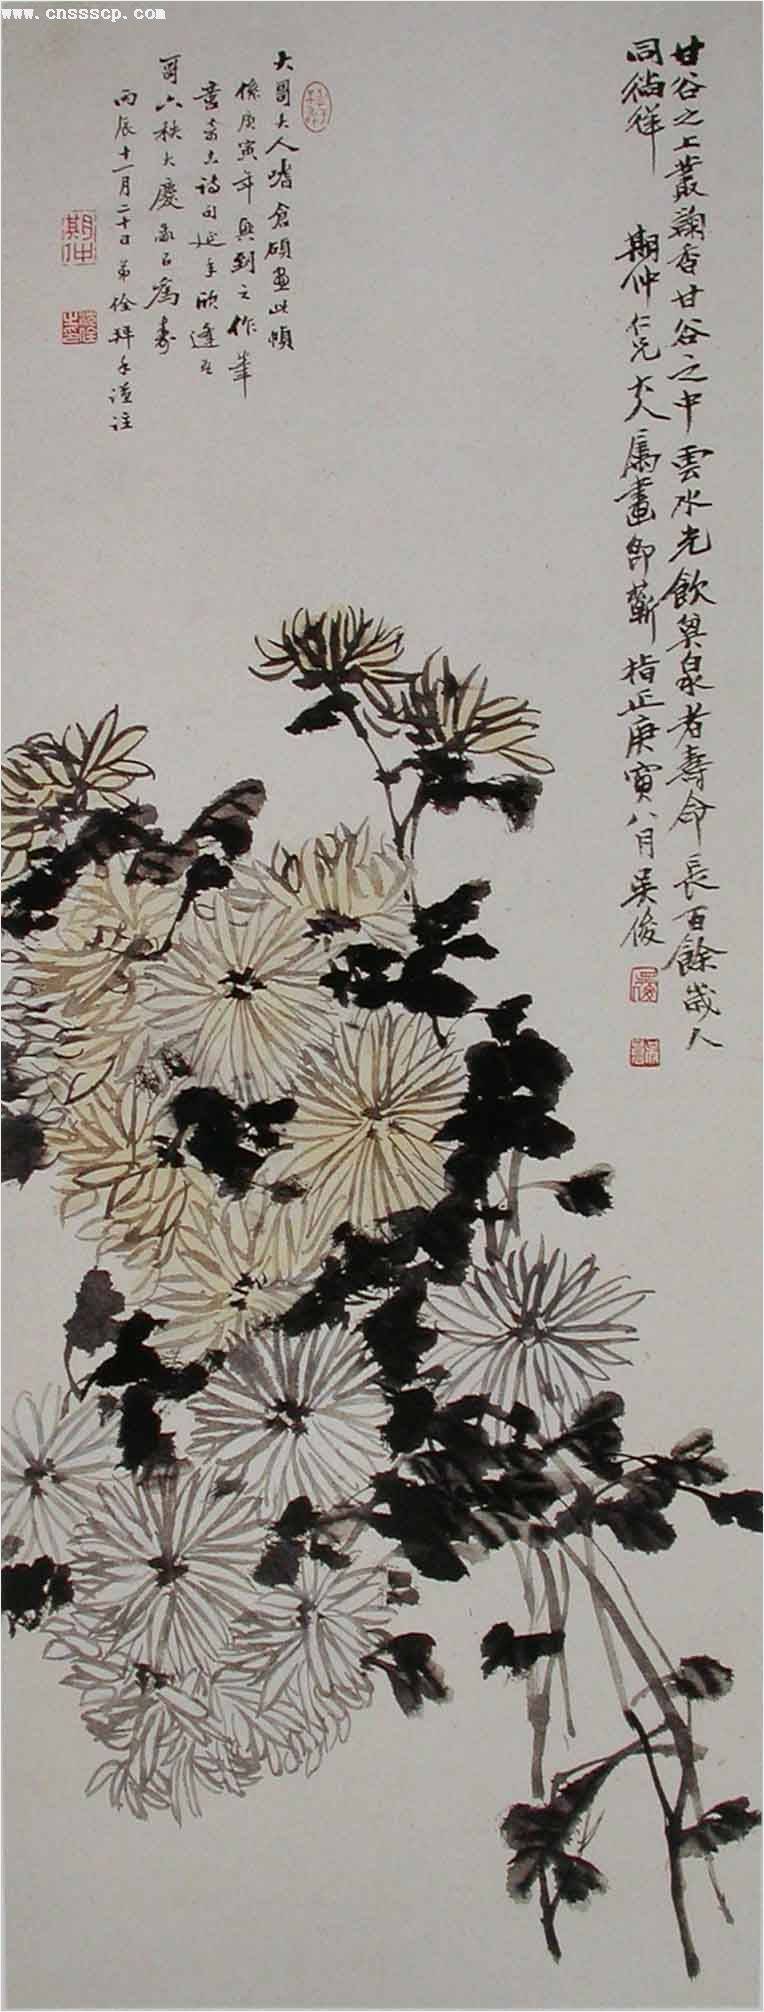 www.cnssscp.com
甘谷之上叢菊香甘谷之中雲水光飲其泉者壽命長百餘歲人
同徜徉 期仲仁兄大人屬畫即蘄指正庚寅八月吳俊
大哥大人嗜倉碩畫此幀
係庚寅年興到之作筆
意奇古詩句延年欣逢吾
哥六秩大慶敬以為壽
丙辰十一月二十日弟佺拜手謹注
期仲